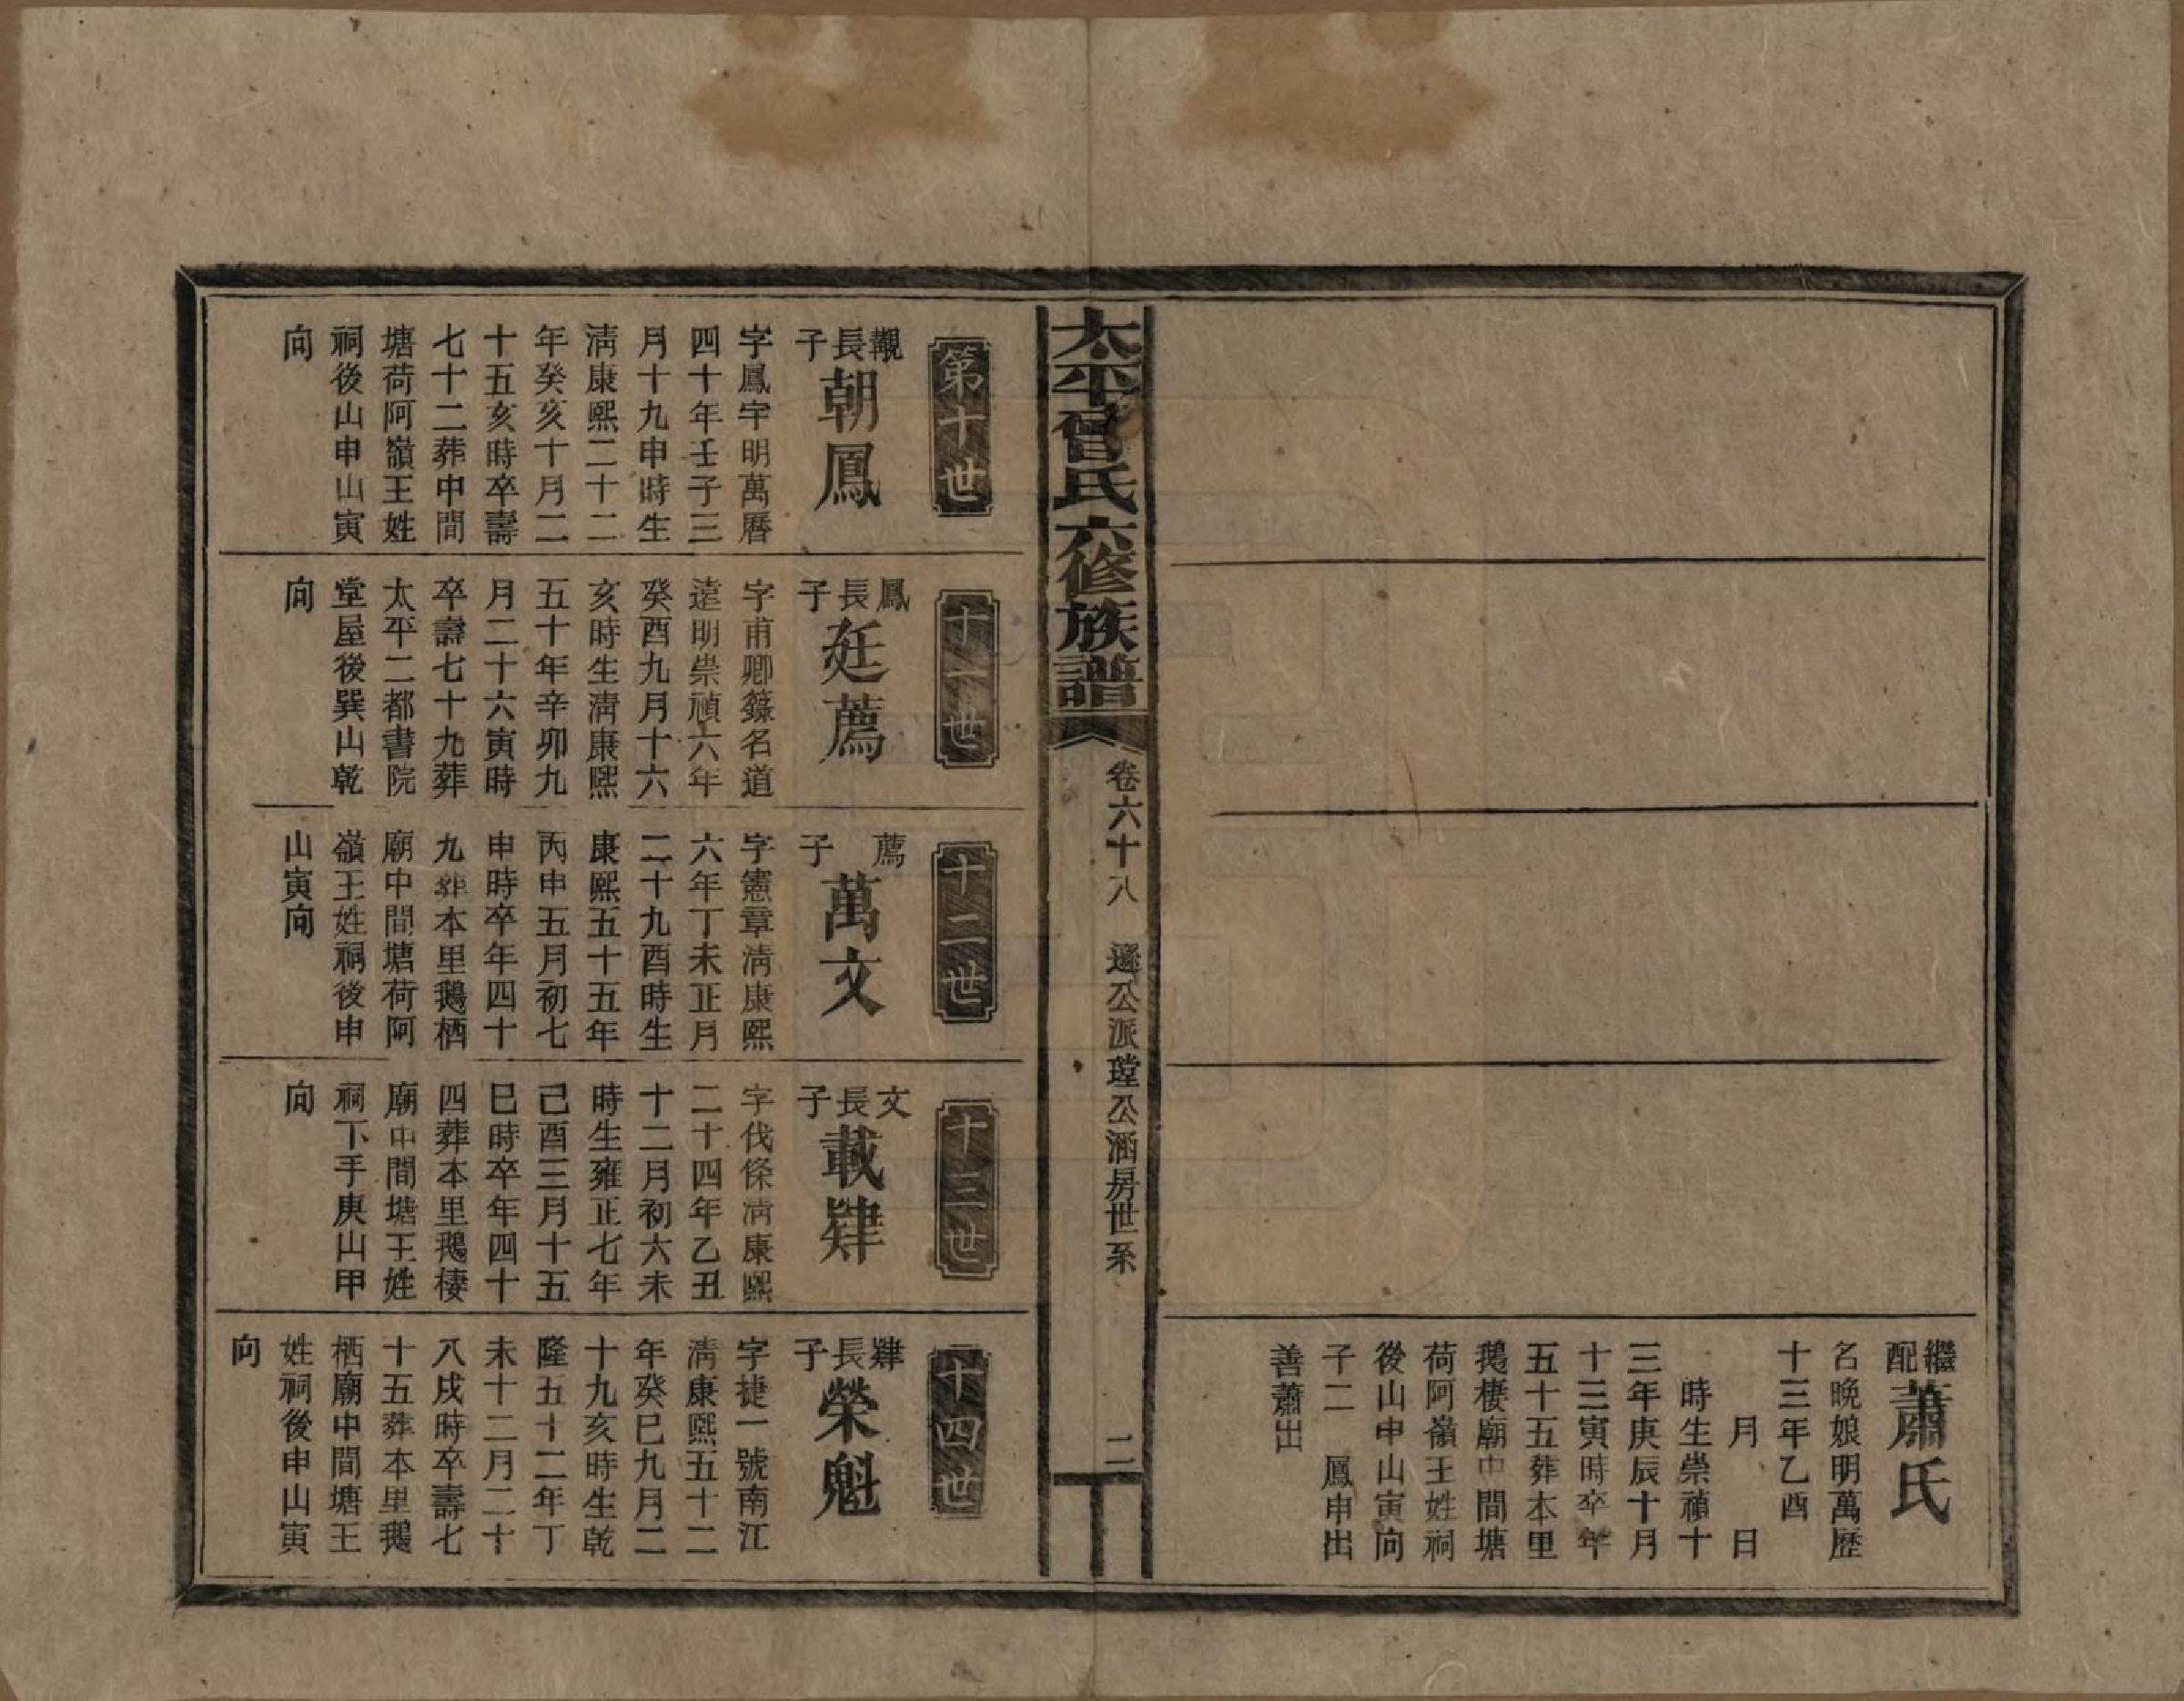 繼配蕭氏
名晚娘明萬歷
十三年乙酉
月　日
時生崇禎十
三年庚辰十月
十三寅時卒年
五十五葬本里
鵝棲廟中間塘
荷阿嶺王姓祠
後山申山寅向
子二　鳳申出
善蕭出
太平曾氏六修族譜
卷六十八　遜公派瑩公涵房世系
二
第十世
觀長子朝鳳
字鳳宇明萬曆
四十年壬子三
月十九申時生
淸康熙二十二
年癸亥十月二
十五亥時卒壽
七十二葬中間
塘荷阿嶺王姓
祠後山申山寅
向
十一世
鳳長子廷薦
字甫卿籙名道
遠明崇禎六年
癸酉九月十六
亥時生淸康熙
五十年辛卯九
月二十六寅時
卒壽七十九葬
太平二都書院
堂屋後巽山乾
向
十二世
薦子萬文
字憲章淸康熙
六年丁未正月
二十九酉時生
康熙五十五年
丙申五月初七
申時卒年四十
九葬本里鵝栖
廟中間塘荷阿
嶺王姓祠後申
山寅向
十三世
文長子載肄
字伐條淸康熙
二十四年乙丑
十二月初六未
時生雍正七年
己酉三月十五
巳時卒年四十
四葬本里鵝棲
廟中間塘王姓
祠下手庚山甲
向
十四世
肄長子榮魁
字捷一號南江
淸康熙五十二
年癸巳九月二
十九亥時生乾
隆五十二年丁
未十二月二十
八戌時卒壽七
十五葬本里鵝
栖廟中間塘王
姓祠後申山寅
向